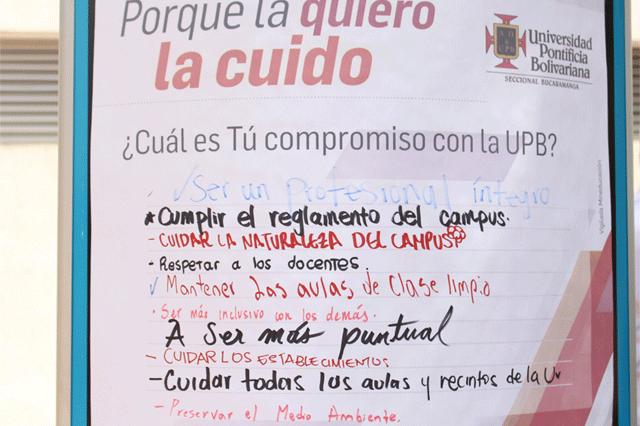 Porque la quiero
la cuido
Universidad
Pontificia
Bolivariana
SECCIONAL BUCARAMANGA
¿Cuál es Tú compromiso con la UPB?
✓ Ser un Profesional íntegro
* Cumplir el reglamento del campus.
- CUIDAR LA NATURALEZA DEL CAMPUS
- Respetar a los docentes.
✓ Mantener las aulas de clase limpio
· Ser más inclusivo con los demás.
A Ser más puntual
- CUIDAR LOS ESTABLECIMIENTOS
- Cuidar todas las aulas y recintos de la U
- Preservar el Medio Ambiente.
Vigilada Mineducación